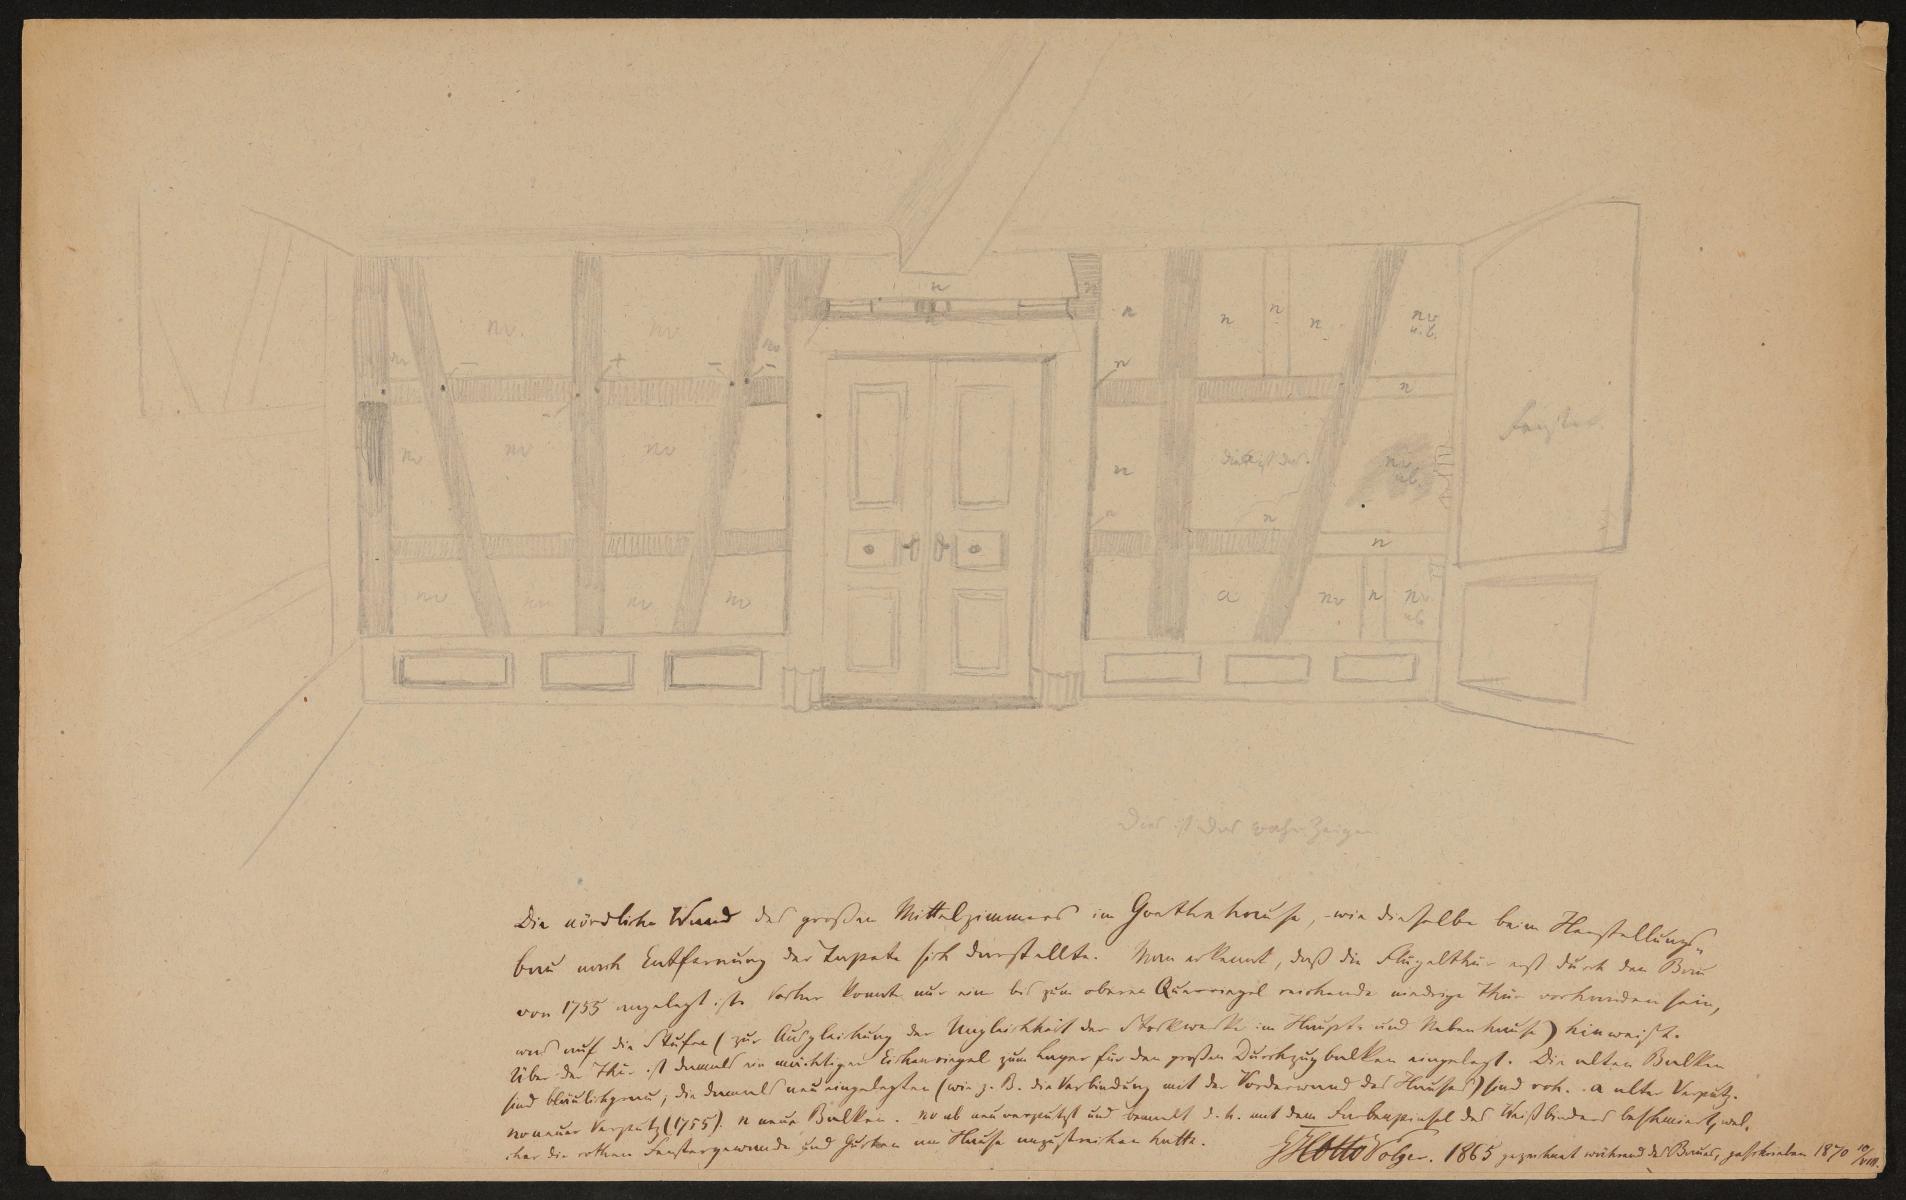 n
nv nv n n n n nv
u.b.
nv nv n n
+
nv nv nv n Fenster
nv
ub.
n n n
nv nv nv nv a nv n nv
ub
Die nördliche Wand des großen Mittelzimmers im Goethehause, wie dieselbe beim Herstellungs-
bau nach Entfernung der Tapete sich darstellte. Man erkennt, daß die Flügelthür erst durch den Bau
von 1755 angelegt ist. Vorher konnte nur eine bis zum oberen Querriegel reichende niedrige Thür vorhanden sein,
was auf die Stufen (zur Ausgleichung der Ungleichheit der Stockwerke im Haupt- und Nebenhause) hinweist.
Über der Thür ist damals ein mächtiger Eichenriegel zum Lager für den großen Durchzugbalken eingelegt. Die alten Balken
sind bläulichgrau; die damals neu eingelegten (wie z. B. die Verbindung mit der Vorderwand des Hauses) sind roh. a alter Verputz.
nv neuer Verputz (1755). n neue Balken. nv ub neu verputzt und bemalt d. h. mit dem Farbenpinsel des Weißbinders beschmiert, wel-
cher die rothen Fenstergewände und Gurten am Hause anzustreichen hatte.
Otto Volger. 1865 gezeichnet während des Baues, geschrieben 1870 10/VIII.